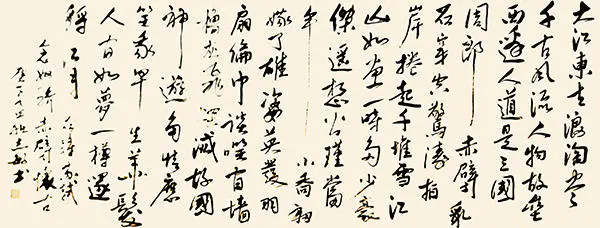 大江東去浪淘尽
千古風流人物故壘
西邊人道是三國
周郎赤壁亂
石穿空驚濤拍
岸捲起千堆雪江
山如畫一時多少豪
傑遥想公瑾當
年小喬初
嫁了雄姿英發羽
扇綸巾談笑間檣
櫓灰飛煙滅故國
神遊多情應
笑我早生華髮
人間如夢一樽還
酹江月
念奴嬌赤壁懷古